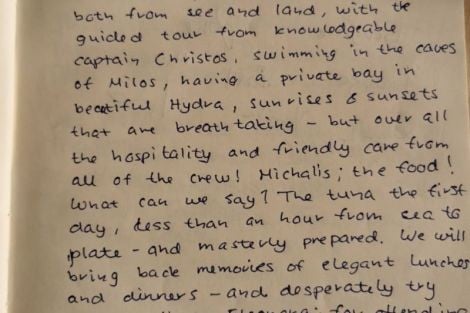 both from see and land, with the
guided tour from knowledgeable
captain Christos, swimming in the caves
of Milos, having a private bay in
beatiful Hydra, sunrises & sunsets
that are breathtaking - but over all
the hospitality and friendly care from
all of the crew! Michalis; the food!
What can we say? The tuna the first
day, less than an hour from sea to
plate - and masterly prepared. We will
bring back memories of elegant lunches
and dinners - and desperately try
for attending